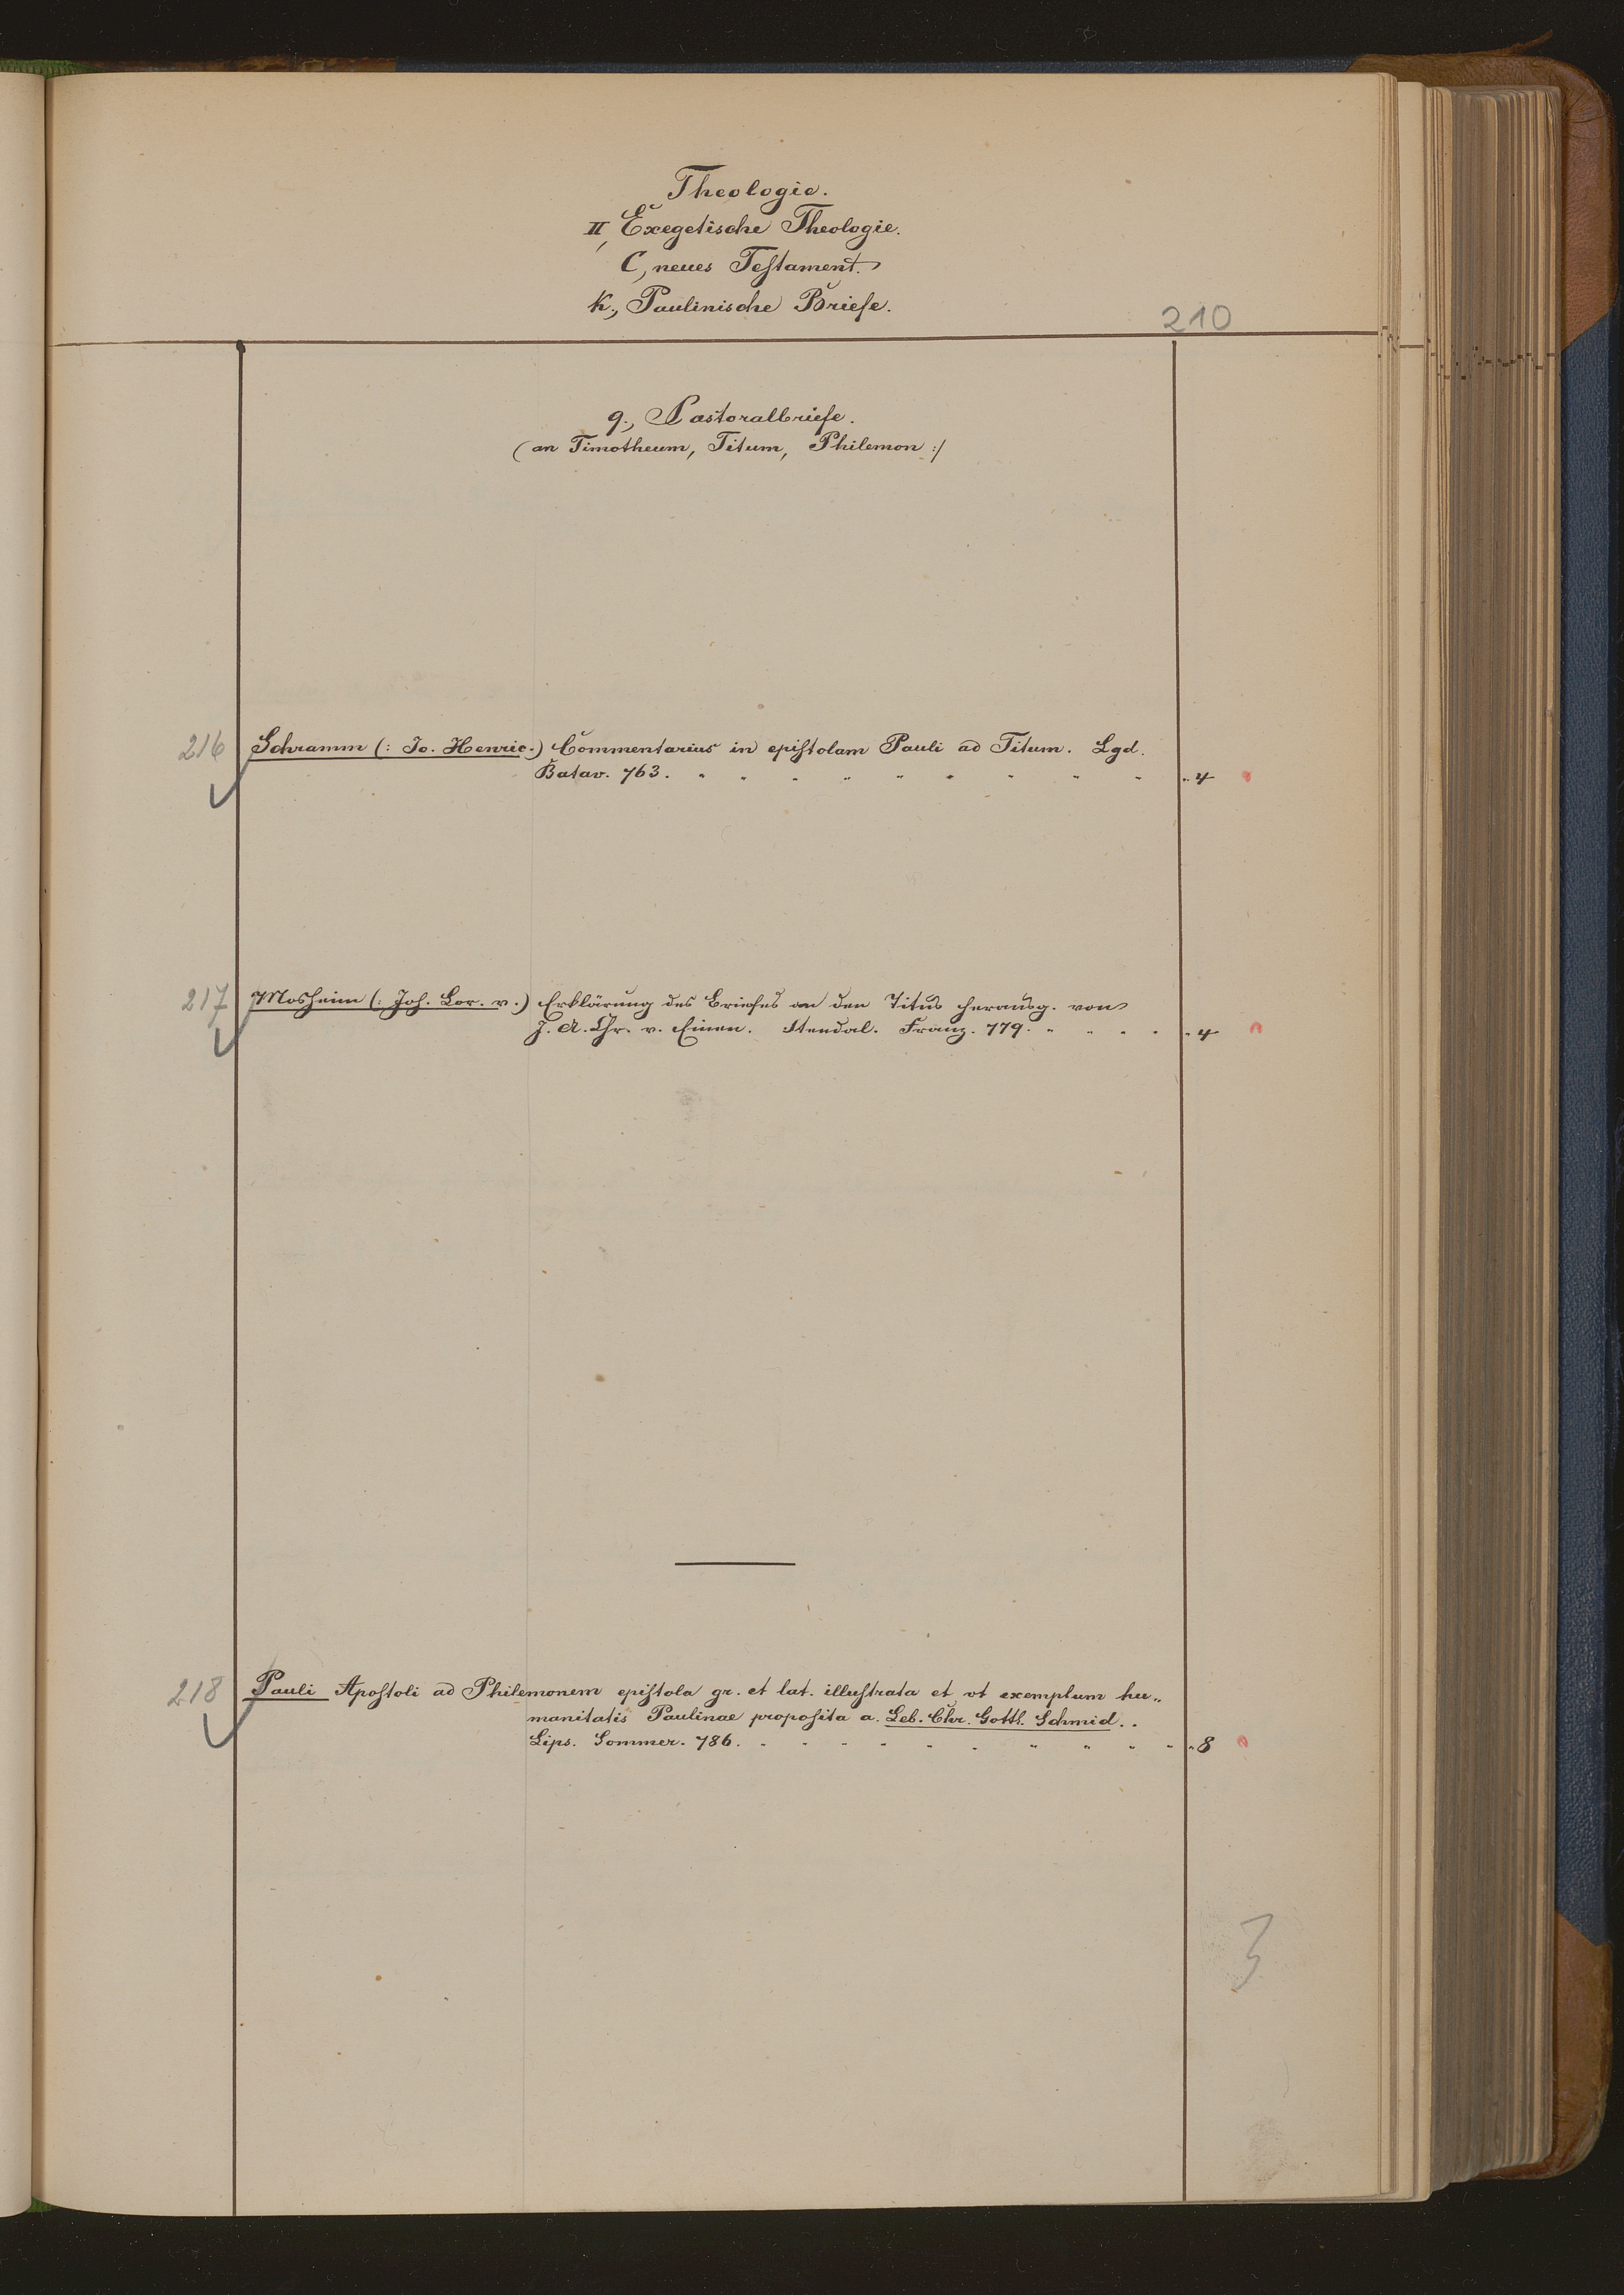 Theologie.
II, Exegetische Theologie.
C, neues Testament.
k., Paulinische Briefe.
210
g., Pastoralbriefe.
(an Timotheum, Titum, Philemon :/
216 Schramm (: Jo. Henric.) Commentarius in epistolam Pauli ad Titum. Lgd.
Batav. 763. " " " " " " " " " " 4
217 Mosheim (: Joh. Lor. v.) Erklärung des Briefes an den Titus herausg. von
J. A. Chr. v. Einen. Stendal. Franz. 779. " " " " " 4
218 Pauli Apostoli ad Philemonem epistola gr. et lat. illustrata et vt exemplum hu„
manitatis Paulinae proposita a. Leb. Chr. Gottl. Schmid..
Lips. Sommer. 786. " " " " " " " " " " " 8
3